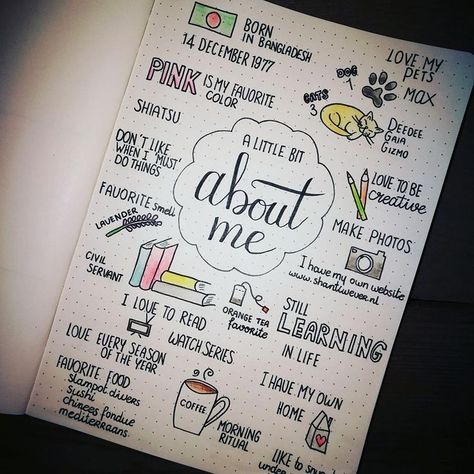 BORN
IN BANGLADESH
14 DECEMBER 1977
LOVE MY
PETS
DOG
1
MAX
CATS
3
DEEDEE
GAIA
GIZMO
PINK IS MY FAVORITE
COLOR
SHIATSU
DON'T LIKE
WHEN I 'MUST'
DO THINGS
A LITTLE BIT
about
me
LOVE TO BE
creative
MAKE PHOTOS
FAVORITE smell
LAVENDER
I have my own website
www.shantiwever.nl
CIVIL
SERVANT
I LOVE TO READ
ORANGE TEA
favorite
STILL
LEARNING
IN LIFE
WATCH SERIES
LOVE EVERY SEASON
OF THE YEAR
FAVORITE FOOD
stampot divers
sushi
chinees fondue
mediterraans
COFFEE
MORNING
RITUAL
I HAVE MY OWN
HOME
LIKE TO
under